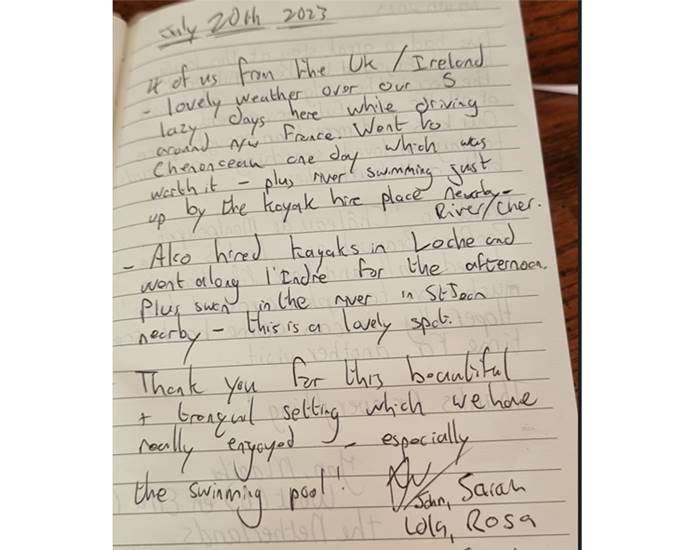 July 20th 2023
4 of us from the UK / Ireland
- lovely weather over our 5
lazy days here while driving
around N/W France. Went to
Chenonceau one day which was
worth it - plus river swimming just
up by the kayak hire place nearby -
River/Cher.
- Also hired kayaks in Loche and
went along l'Indre for the afternoon.
Plus swam in the river in St Jean
nearby - this is a lovely spot.
Thank you for this beautiful
+ tranquil setting which we have
really enjoyed - especially
the swimming pool!
John, Sarah
Lola, Rosa
the Netherlands